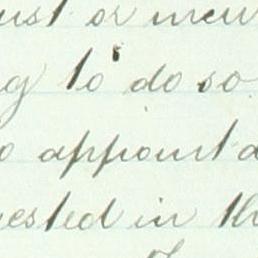 ust or incu
g to do so
o appoint a
ested in th